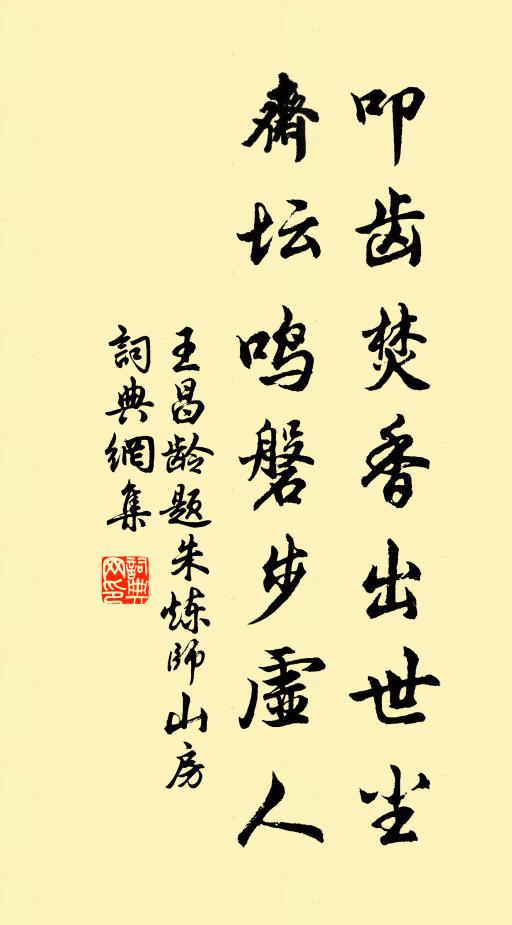 叩齿焚香出世尘
齋坛鸣磐步虚人
王昌龄题朱炼师山房
詞典網集
詞典网印